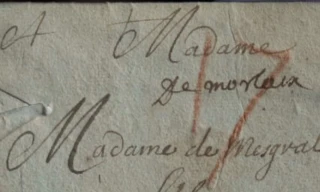 et Madame
De morlaix
Madame de Mesgral